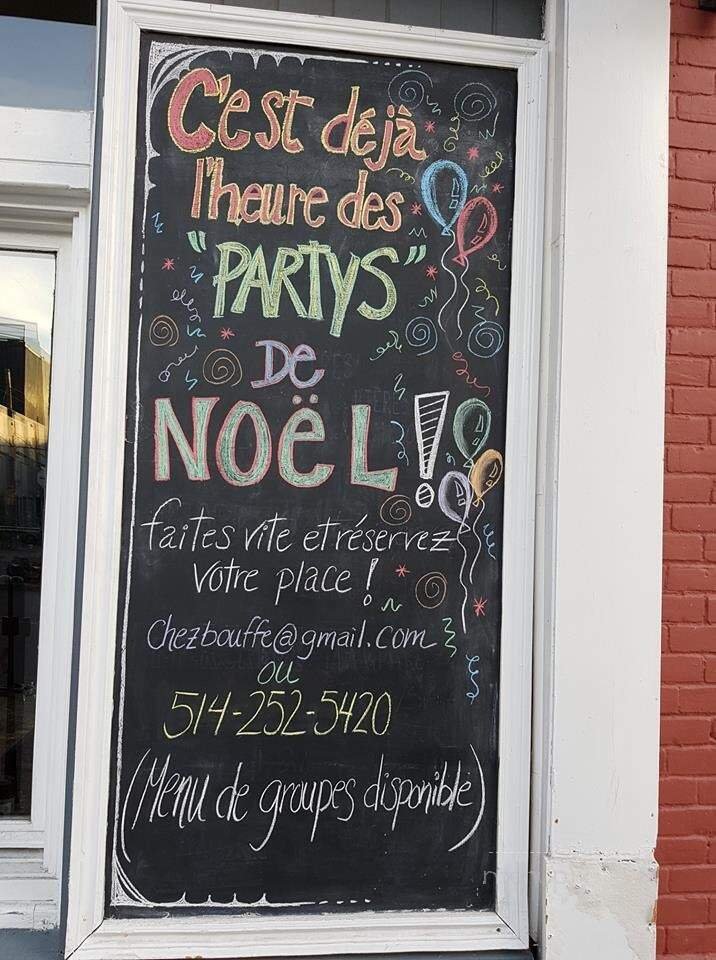 C'est déjà
l'heure des
"PARTYS"
DE
NOËL!
faites vite et réservez
votre place!
Chezbouffe@gmail.com
ou
514-252-5420
(Menu de groupes disponible)